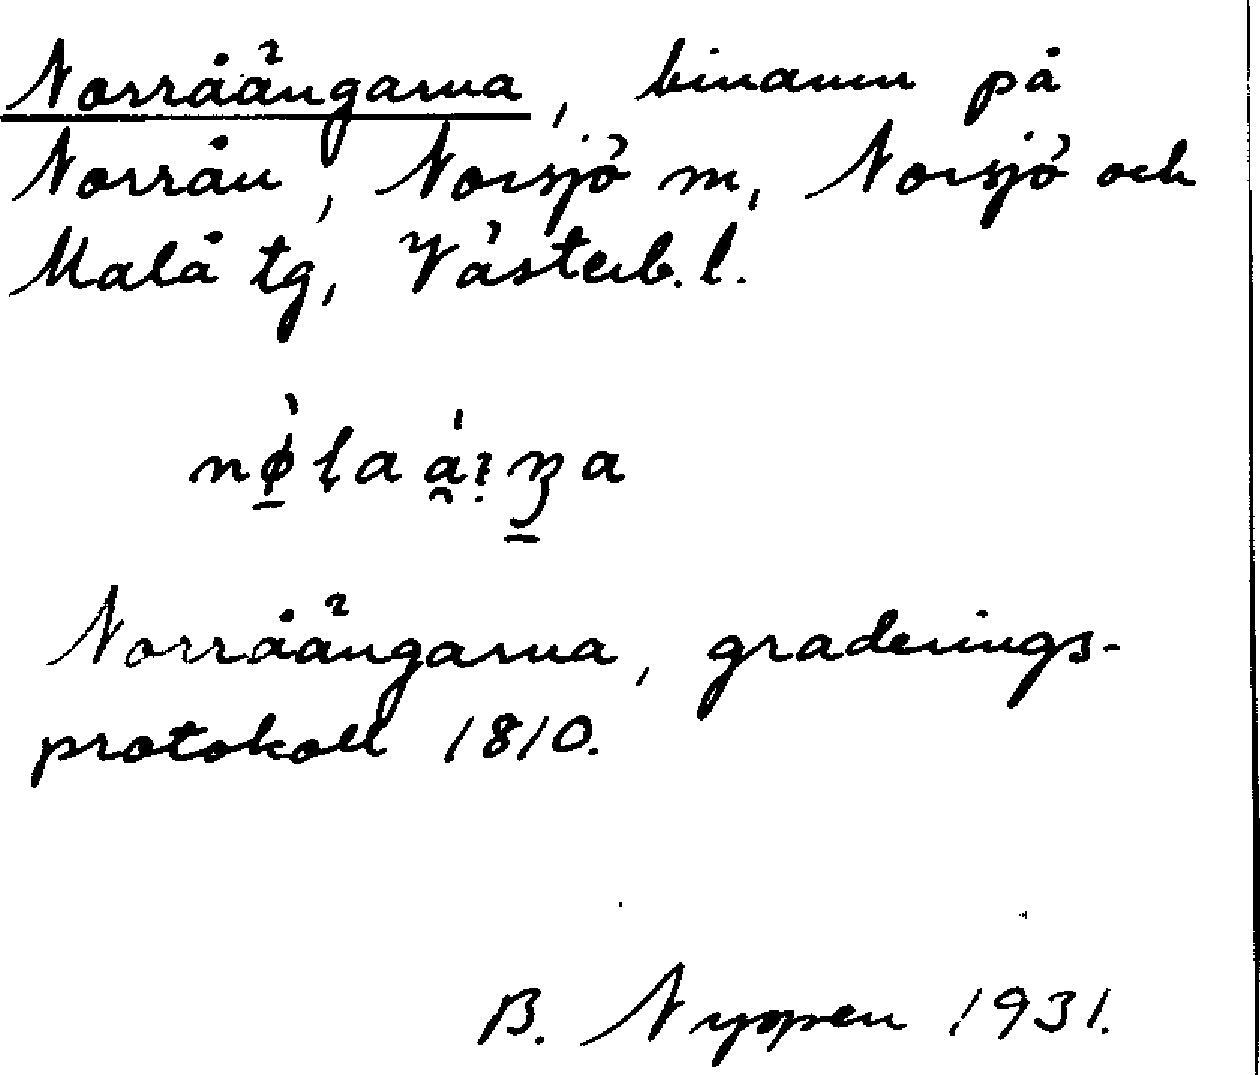 Norråängarna, binamn på
Norrån, Norsjö m, Norsjö och
Malå tg, Västerb. l.
Norråängarna, graderings-
protokoll 1810.
B. Nyppen 1931.